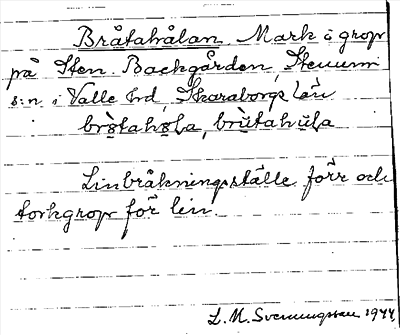 Bråtahålan. Mark i grop
på Sten. Backgården, Stenums
s:n i Valle hd, Skaraborgs län
brötahøla, brùtahùla
Linbråkningsställe förr och
torkgrop för lin.
L. M. Svenungsson 1944.